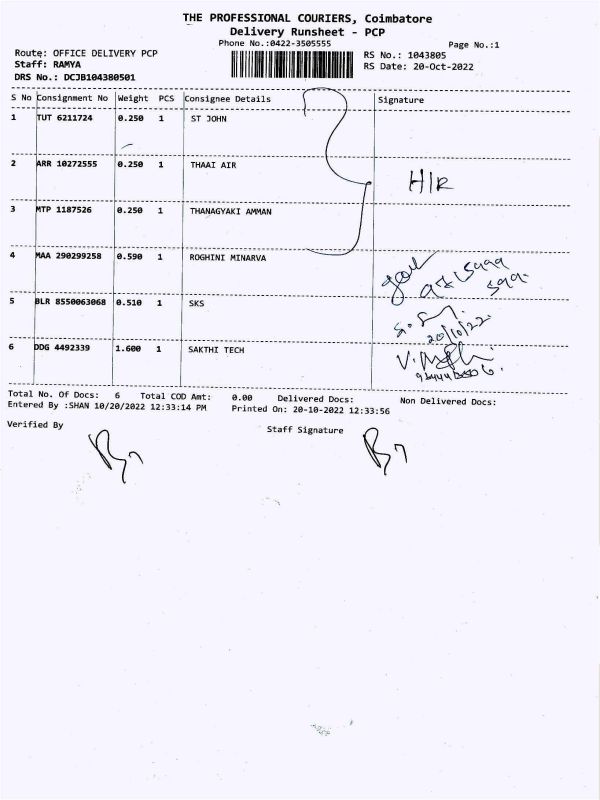 THE PROFESSIONAL COURIERS, Coimbatore
Delivery Runsheet - PCP
Phone No.:0422-3505555
Page No.:1
Route: OFFICE DELIVERY PCP
RS No.: 1043805
Staff: RAMYA
RS Date: 20-Oct-2022
DRS No.: DCJB104380501
S No Consignment No Weight PCS Consignee Details Signature
1 TUT 6211724 0.250 1 ST JOHN
2 ARR 10272555 0.250 1 THAAI AIR
H/R
3 MTP 1187526 0.250 1 THANAGYAKI AMMAN
4 MAA 290299258 0.590 1 ROGHINI MINARVA
5 BLR 8550063068 0.510 1 SKS
20/10/22
6 DDG 4492339 1.600 1 SAKTHI TECH
Total No. Of Docs: 6 Total COD Amt: 0.00 Delivered Docs: Non Delivered Docs:
Entered By :SHAN 10/20/2022 12:33:14 PM Printed On: 20-10-2022 12:33:56
Verified By Staff Signature